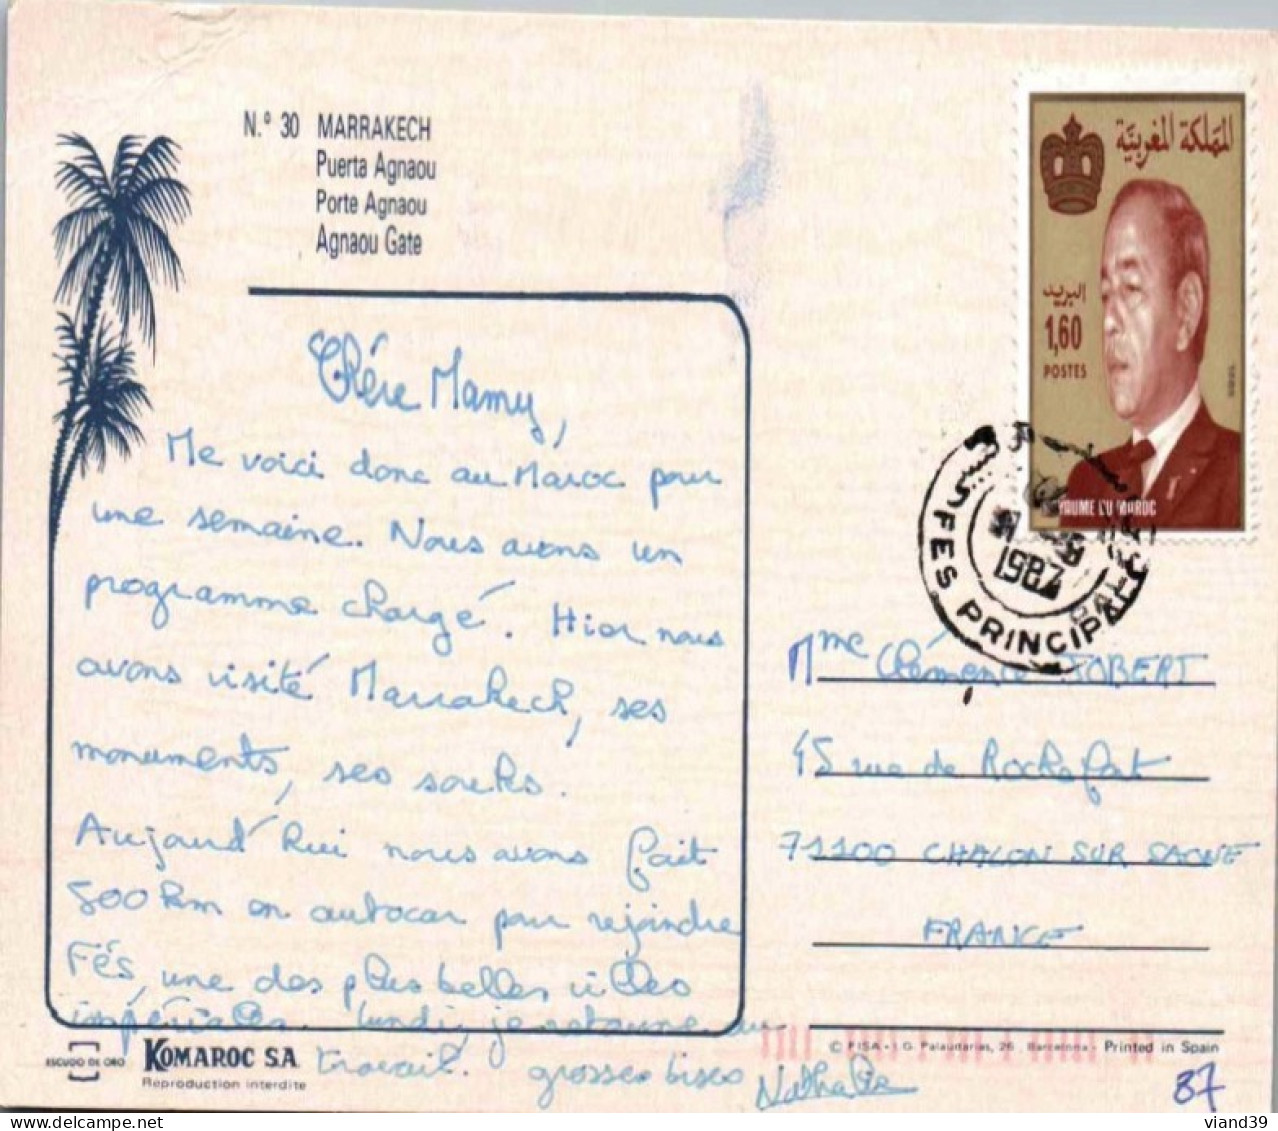 N.º 30 MARRAKECH
Puerta Agnaou
Porte Agnaou
Agnaou Gate
المملكة المغربية
البريد
1,60
POSTES
ROYAUME DU MAROC
FES PRINCIPAL
1987
Chère Mamy,
Me voici donc au Maroc pour
une semaine. Nous avons un
programme chargé. Hier nous
avons visité Marrakech, ses
monuments, ses souks.
Aujourd'hui nous avons fait
500 km en autocar pour rejoindre
Fés, une des plus belles villes
impériales. Lundi, je retourne au
travail. grosses bises Nathalie
Mme Clémence JOBERT
45 rue de Rochefort
71100 CHALON SUR SAONE
FRANCE
ESCUDO DE ORO
KOMAROC S.A.
Reproduction interdite
© FISA - I. G. Palautarias, 26 Barcelona - Printed in Spain
87
viand39